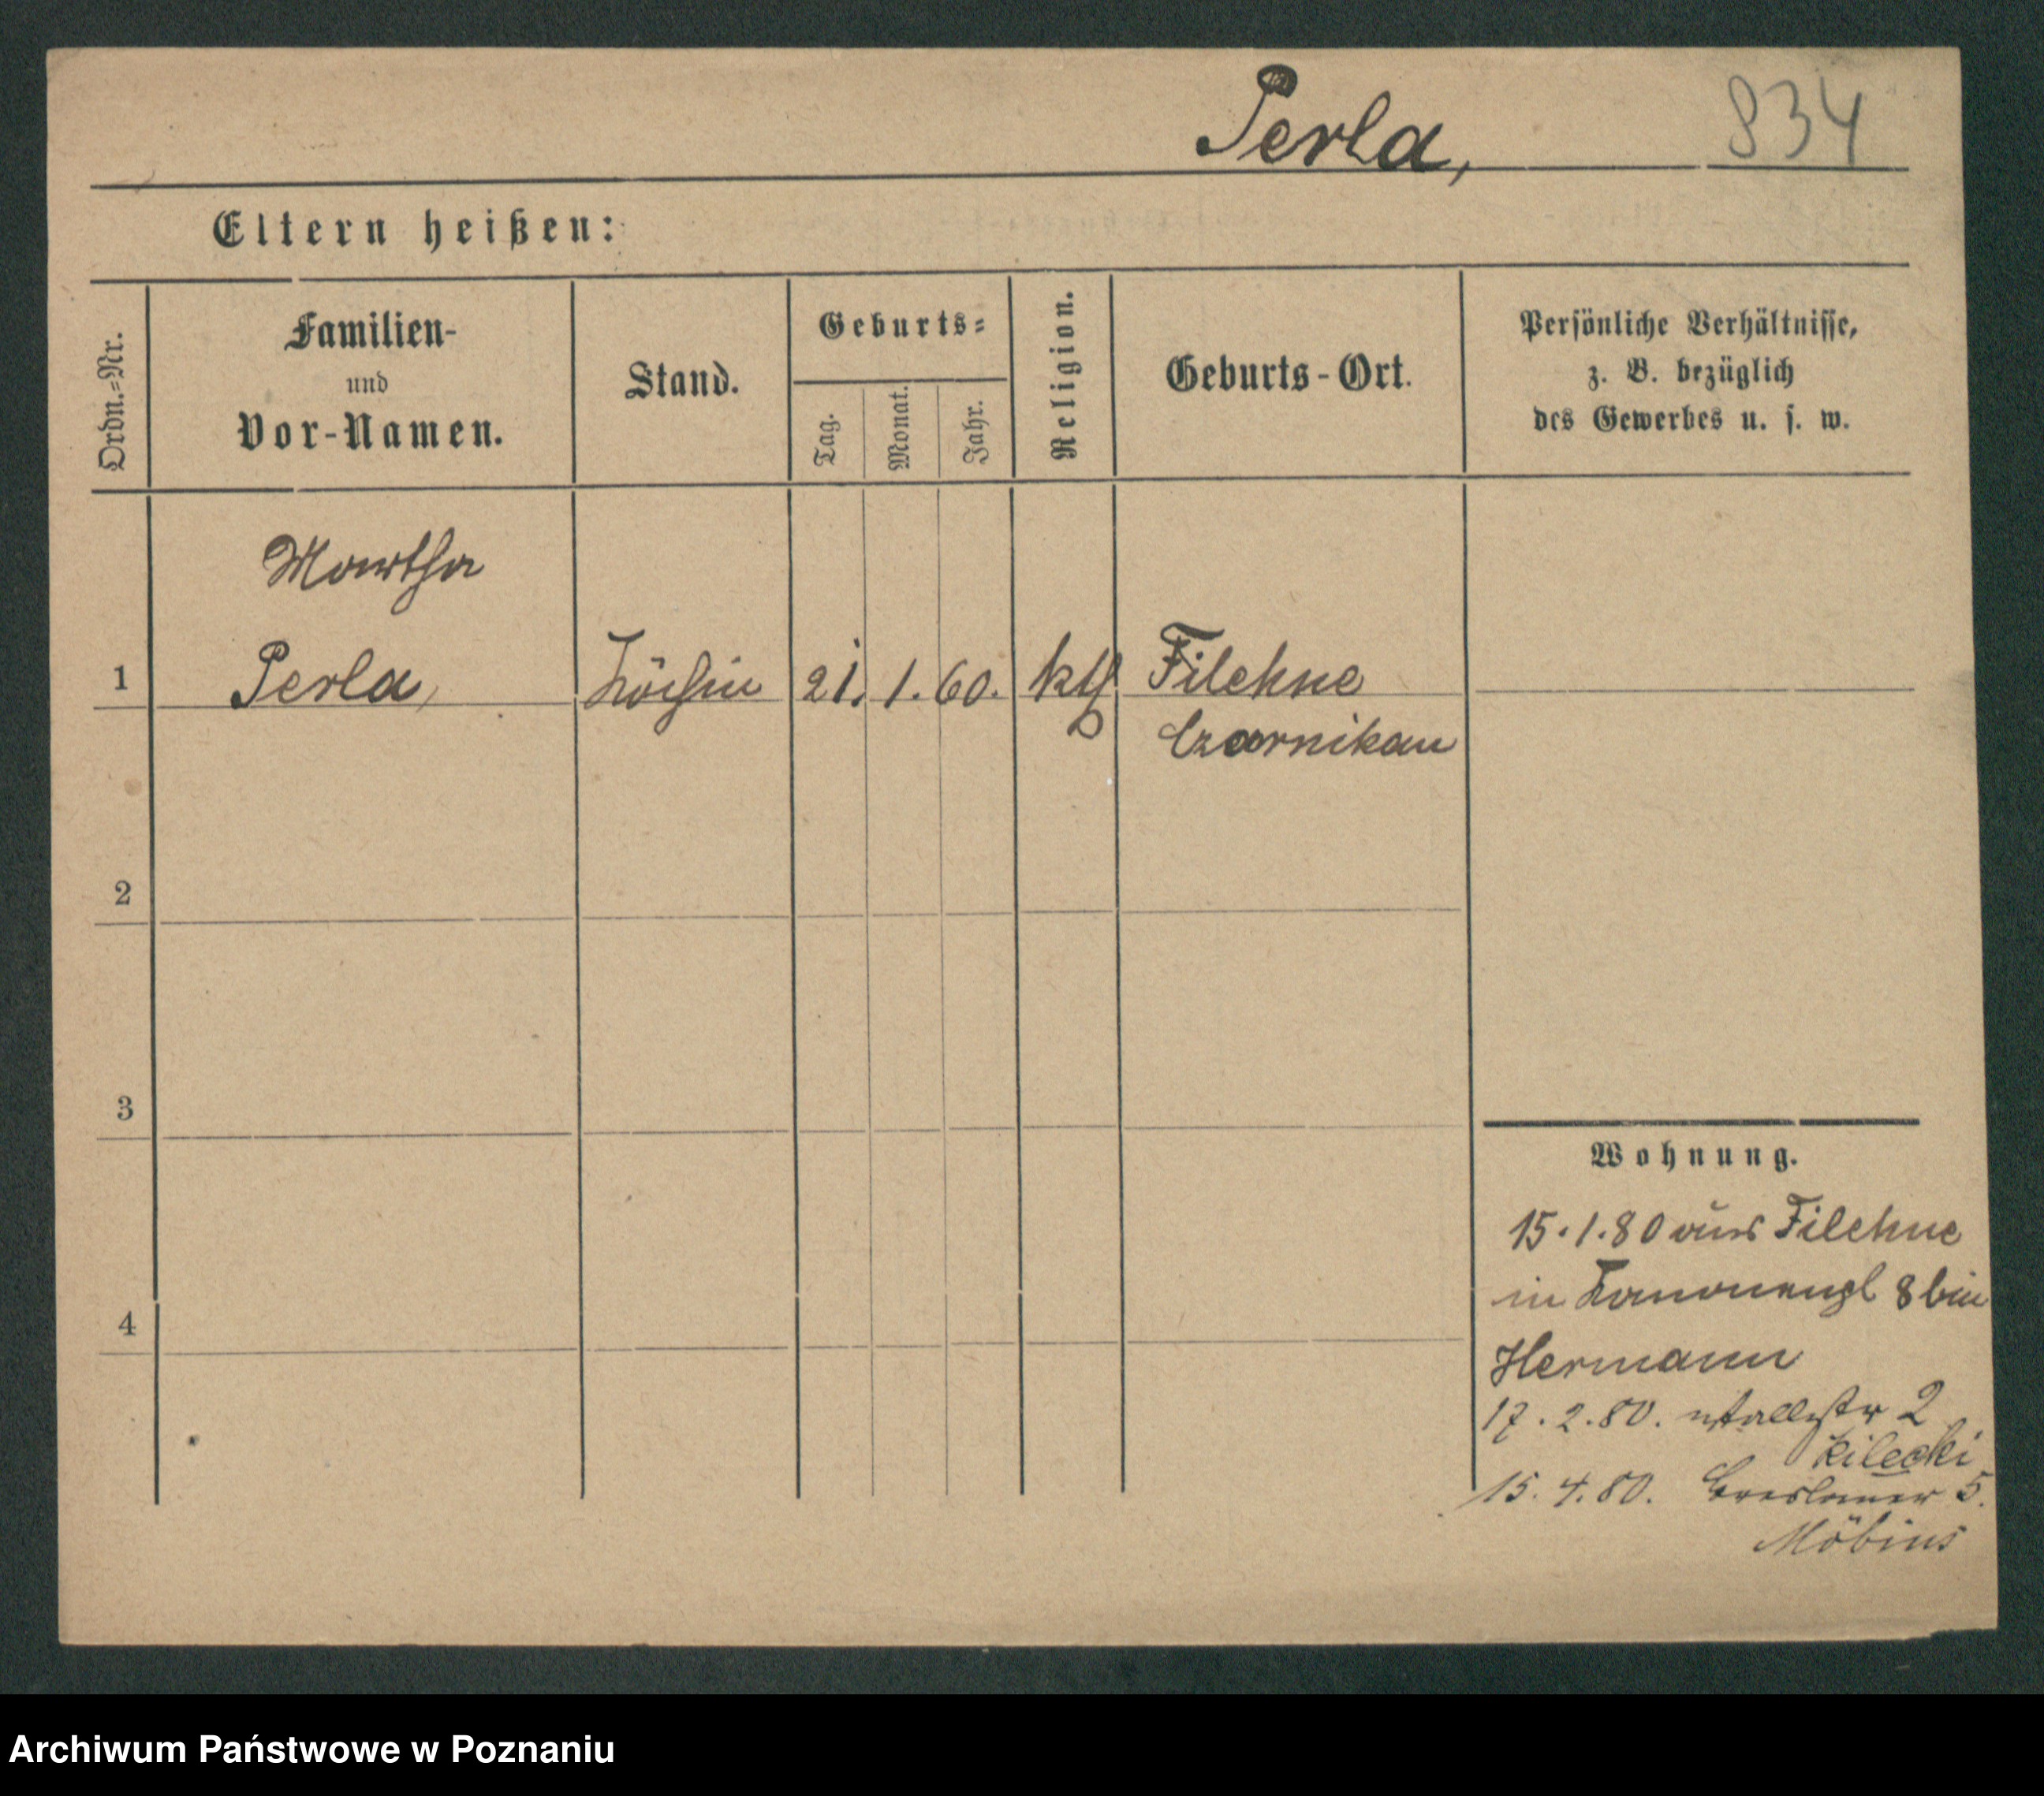 Perla, 834
Eltern heißen:
Ordn.=Nr.
Familien-
und
Vor-Namen.
Stand.
Geburts=
Tag.
Monat.
Jahr.
Religion.
Geburts-Ort.
Persönliche Verhältnisse,
z. B. bezüglich
des Gewerbes u. s. w.
Martha
1 Perla, Köchin 21. 1. 60. kth Filehne
Czarnikau
2
3
4
Wohnung.
15.1.80 aus Filehne
in Kanonenpl 8 bei
Hermann
17.2.80. 2
Kilecki
15.4.80. Breslauer 5.
Möbius
Archiwum Państwowe w Poznaniu